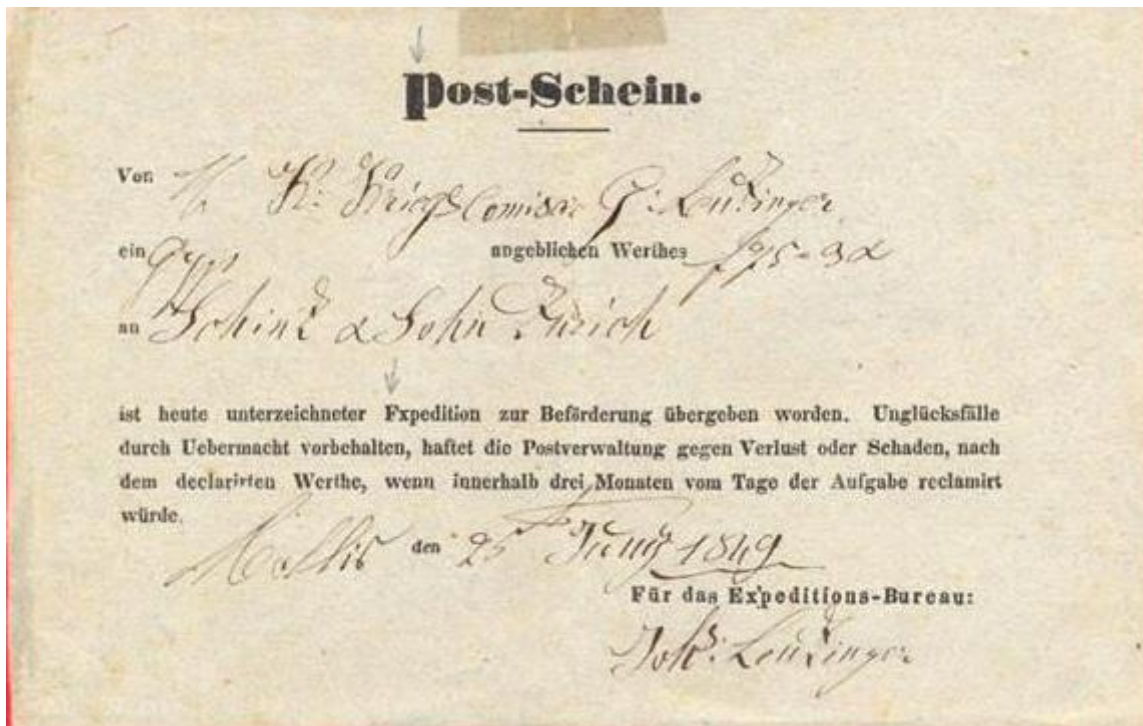 Post-Schein.
Von H. K: KriegsComisair G: Leuzinger
ein angeblichen Werthes
an Schinz & Sohn Zurich
ist heute unterzeichneter Fxpedition zur Beförderung übergeben worden. Unglücksfälle
durch Uebermacht vorbehalten, haftet die Postverwaltung gegen Verlust oder Schaden, nach
dem declarirten Werthe, wenn innerhalb drei Monaten vom Tage der Aufgabe reclamirt
würde.
Mollis den 25 Juny 1849
Für das Expeditions-Bureau:
Joh: Leuzinger